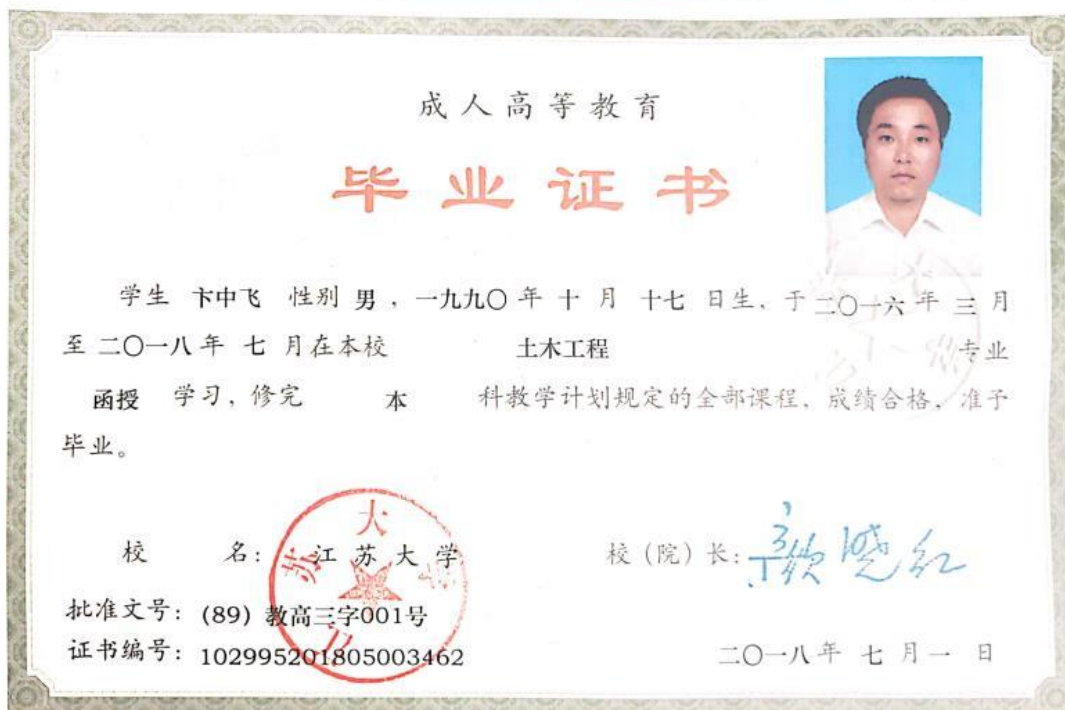 成人高等教育
毕业证书
学生 卞中飞 性别 男，一九九〇年 十 月 十七 日生、于二〇一六年 三 月
至二〇一八年 七 月在本校 土木工程 专业
函授 学习，修完 本 科教学计划规定的全部课程、成绩合格，准予
毕业。
校 名： 江苏大学
校（院）长：
批准文号：(89) 教高三字001号
证书编号：102995201805003462
二〇一八年 七 月 一 日
江苏大学